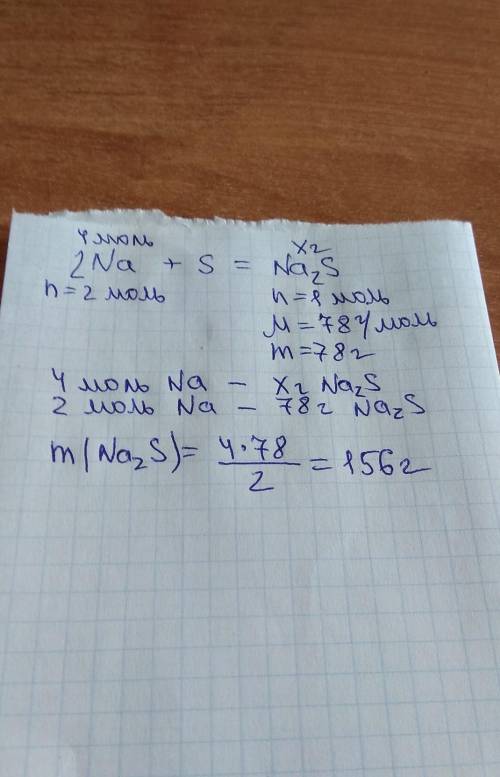 4 моль x г
2Na + S = Na₂S
n = 2 моль n = 1 моль
M = 78 г/моль
m = 78 г
4 моль Na – x г Na₂S
2 моль Na – 78 г Na₂S
m(Na₂S) = 4·78 / 2 = 156 г